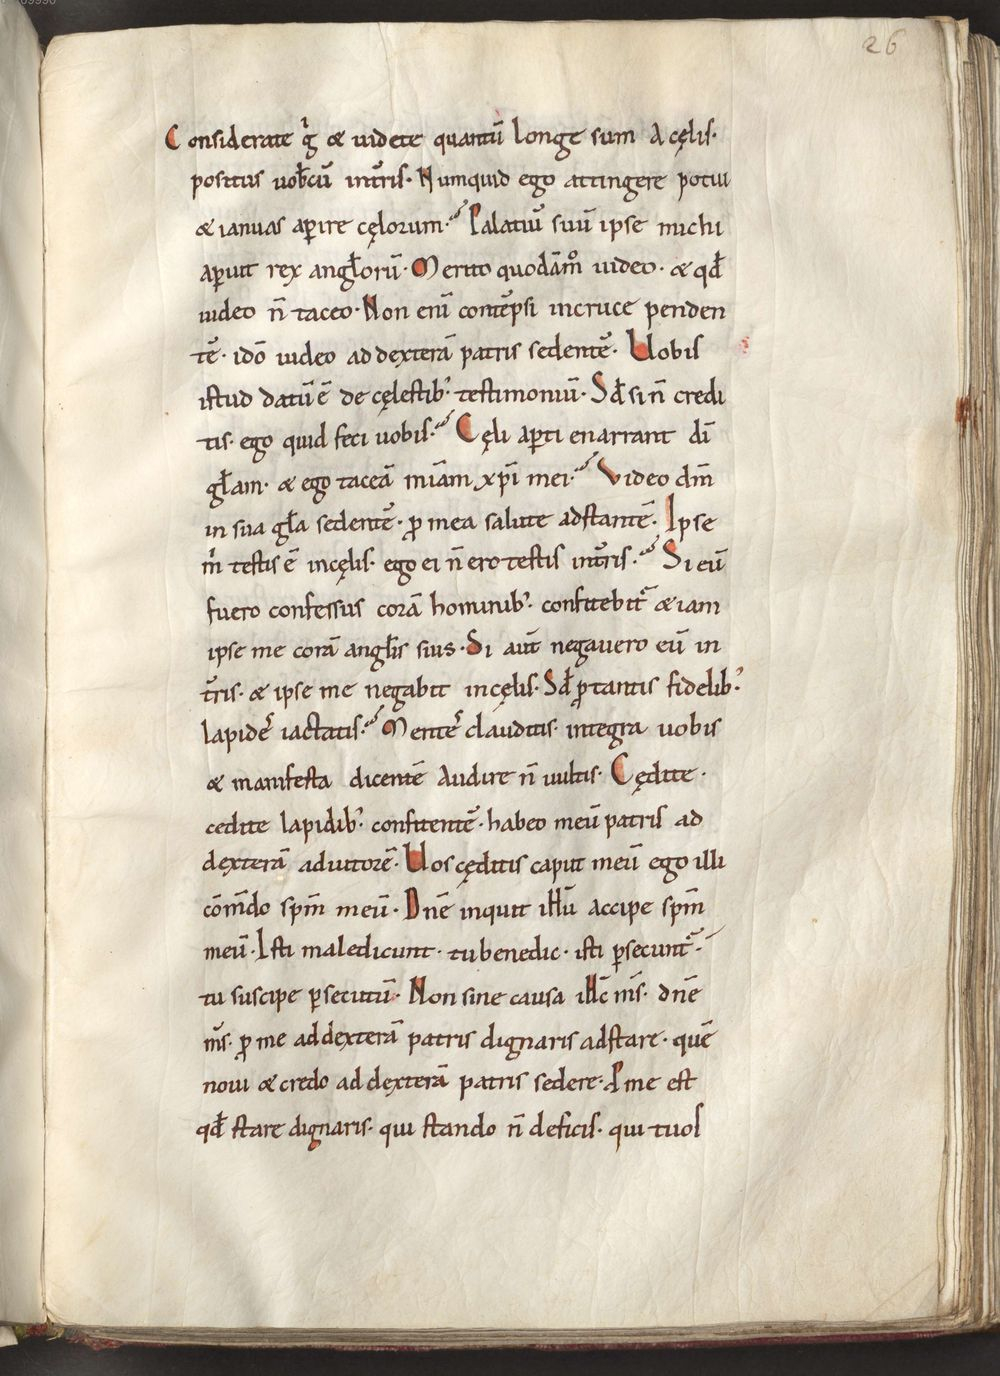 26
Considerate g̍ & uidete quantū longe sum A cęlis·
positus uob̄cū int̄ris· Numquid ego attingere potui
& ianuas aꝑire cęlorum·? Palatiū suū ipse michi
aꝑuit rex angłorū· Merito quodām̊ uideo· & qđ
uideo n̄ taceo· Non enī contēpsi incruce penden
tē· idō uideo addexterā patris sedentē· Uobis
istud datū ē de cęlestib; testimoniū· Sđ si n̄ credi
tis· ego quid feci uobis·? Cęli aꝑti enarrant dī
gła̅m· & ego taceā mīam xp̄i mei·? Video dn̄m
in sua gła sedentē· ꝓ mea salute adstantē· Ipse
m̍ testis ē incęlis· ego ei n̄ ero testis int̄ris·? Si eū
fuero confessus corā hominib; confitebit̄ & iam
ipse me corā angłis suis· Si aut̄ negauero eū in
t̄ris· & ipse me negabit incęlis· Sđ ꝓtantis fidelib;
lapidē iactatis·? Mentē clauditis· integra uobis
& manifesta dicentē Audire n̄ uultis· Cędite·
cedite lapidib; confitentē· habeo meū patris ad
dexterā adiutorē· Uos cęditis caput meū ego illi
cōm̄do sp̄m meū· Dn̄e inquit ihū accipe sp̄m
meū· Isti maledicunt· tu benedic· isti ꝑsecunt̄·
tu suscipe ꝑsecutū· Non sine causa ih̄c m̄s· dn̄e
m̄s· ꝓ me addexterā patris dignaris adstare· quē
noui & credo ad dexterā patris sedere· Ꝓ me est
qđ stare dignaris· qui stando n̄ deficis· qui tuos